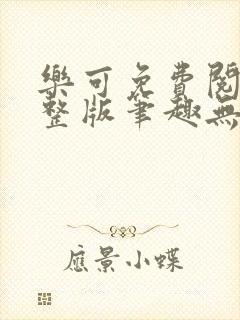 樂可免費閱
整版筆趣無
應景小蝶